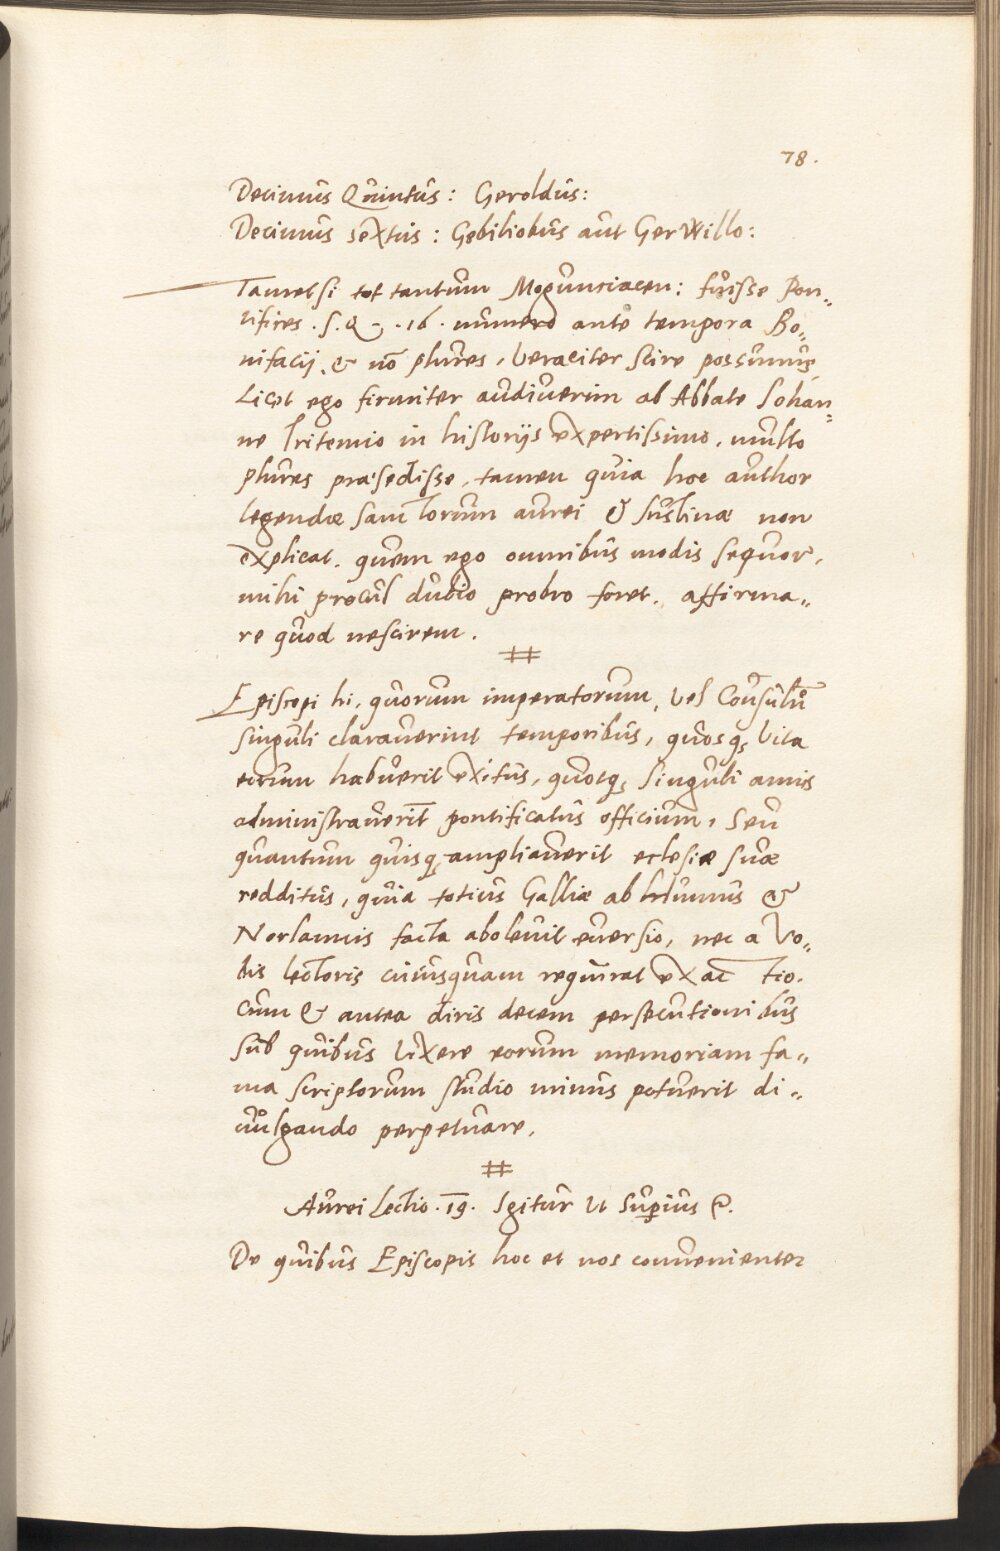 78.
Decimus Quintus: Geroldus:
Decimus sextus: Gebiliobus aut GerWillo:
Tametsi tot tantum Mogunciacen: fuisse Pon„
tifices . s. Q . 16 . numero ante tempora Bo„
nifacij, & nō plures, veraciter scire possumus,
Licet ego firmiter audiverim ab Abbate Johan„
ne Tritemio in historijs expertissimo, multo
plures præsedisse, tamen quia hoc author
legendæ sanctorum aurei & Justinæ non
explicat, quem ego omnibus modis sequor,
mihi procul dubio probro foret, affirma„
re quod nescirem.
Episcopi hi, quorum imperatorum, vel Consulū
singuli claruerint temporibus, quosq, vita
eorum habuerit exitus, quotq, singuli annis
administraverint pontificatus officium, seu
quantum quisq, ampliaverit eclesiæ suæ
redditus, quia totius Galliæ ab Hunnis &
Norlannis facta abolevit eversio, nec a vo„
bis lectoris cuiusquam requirat exactio.
Cum & antea diris decem persecutionibus
sub quibus vixere eorum memoriam fa„
ma scriptorum studio minus potuerit di„
vulgando perpetuare.
Aurei Lectio . 19. Igitur ut supius &.
De quibus Episcopis hoc et nos convenienter